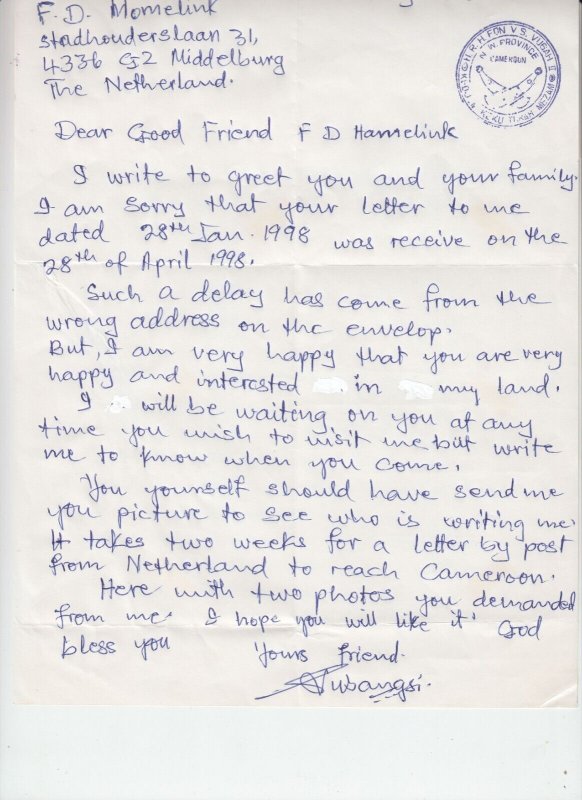 F. D. Momelink
Stadhouderslaan 31,
4336 G2 Middelburg
The Netherland.
H.R.H FON V.S. VUGAH II
N.W. PROVINCE
CAMEROUN
Dear Good Friend F D Hamelink
I write to greet you and your family.
I am sorry that your letter to me
dated 28th Jan. 1998 was receive on the
28th of April 1998.
Such a delay has come from the
wrong address on the envelop.
But, I am very happy that you are very
happy and interested in my land.
I will be waiting on you at any
time you wish to visit me but write
me to know when you come.
You yourself should have send me
you picture to see who is writing me.
It takes two weeks for a letter by post
from Netherland to reach Cameroon.
Here with two photos you demanded
from me. I hope you will like it. God
bless you
Yours friend.